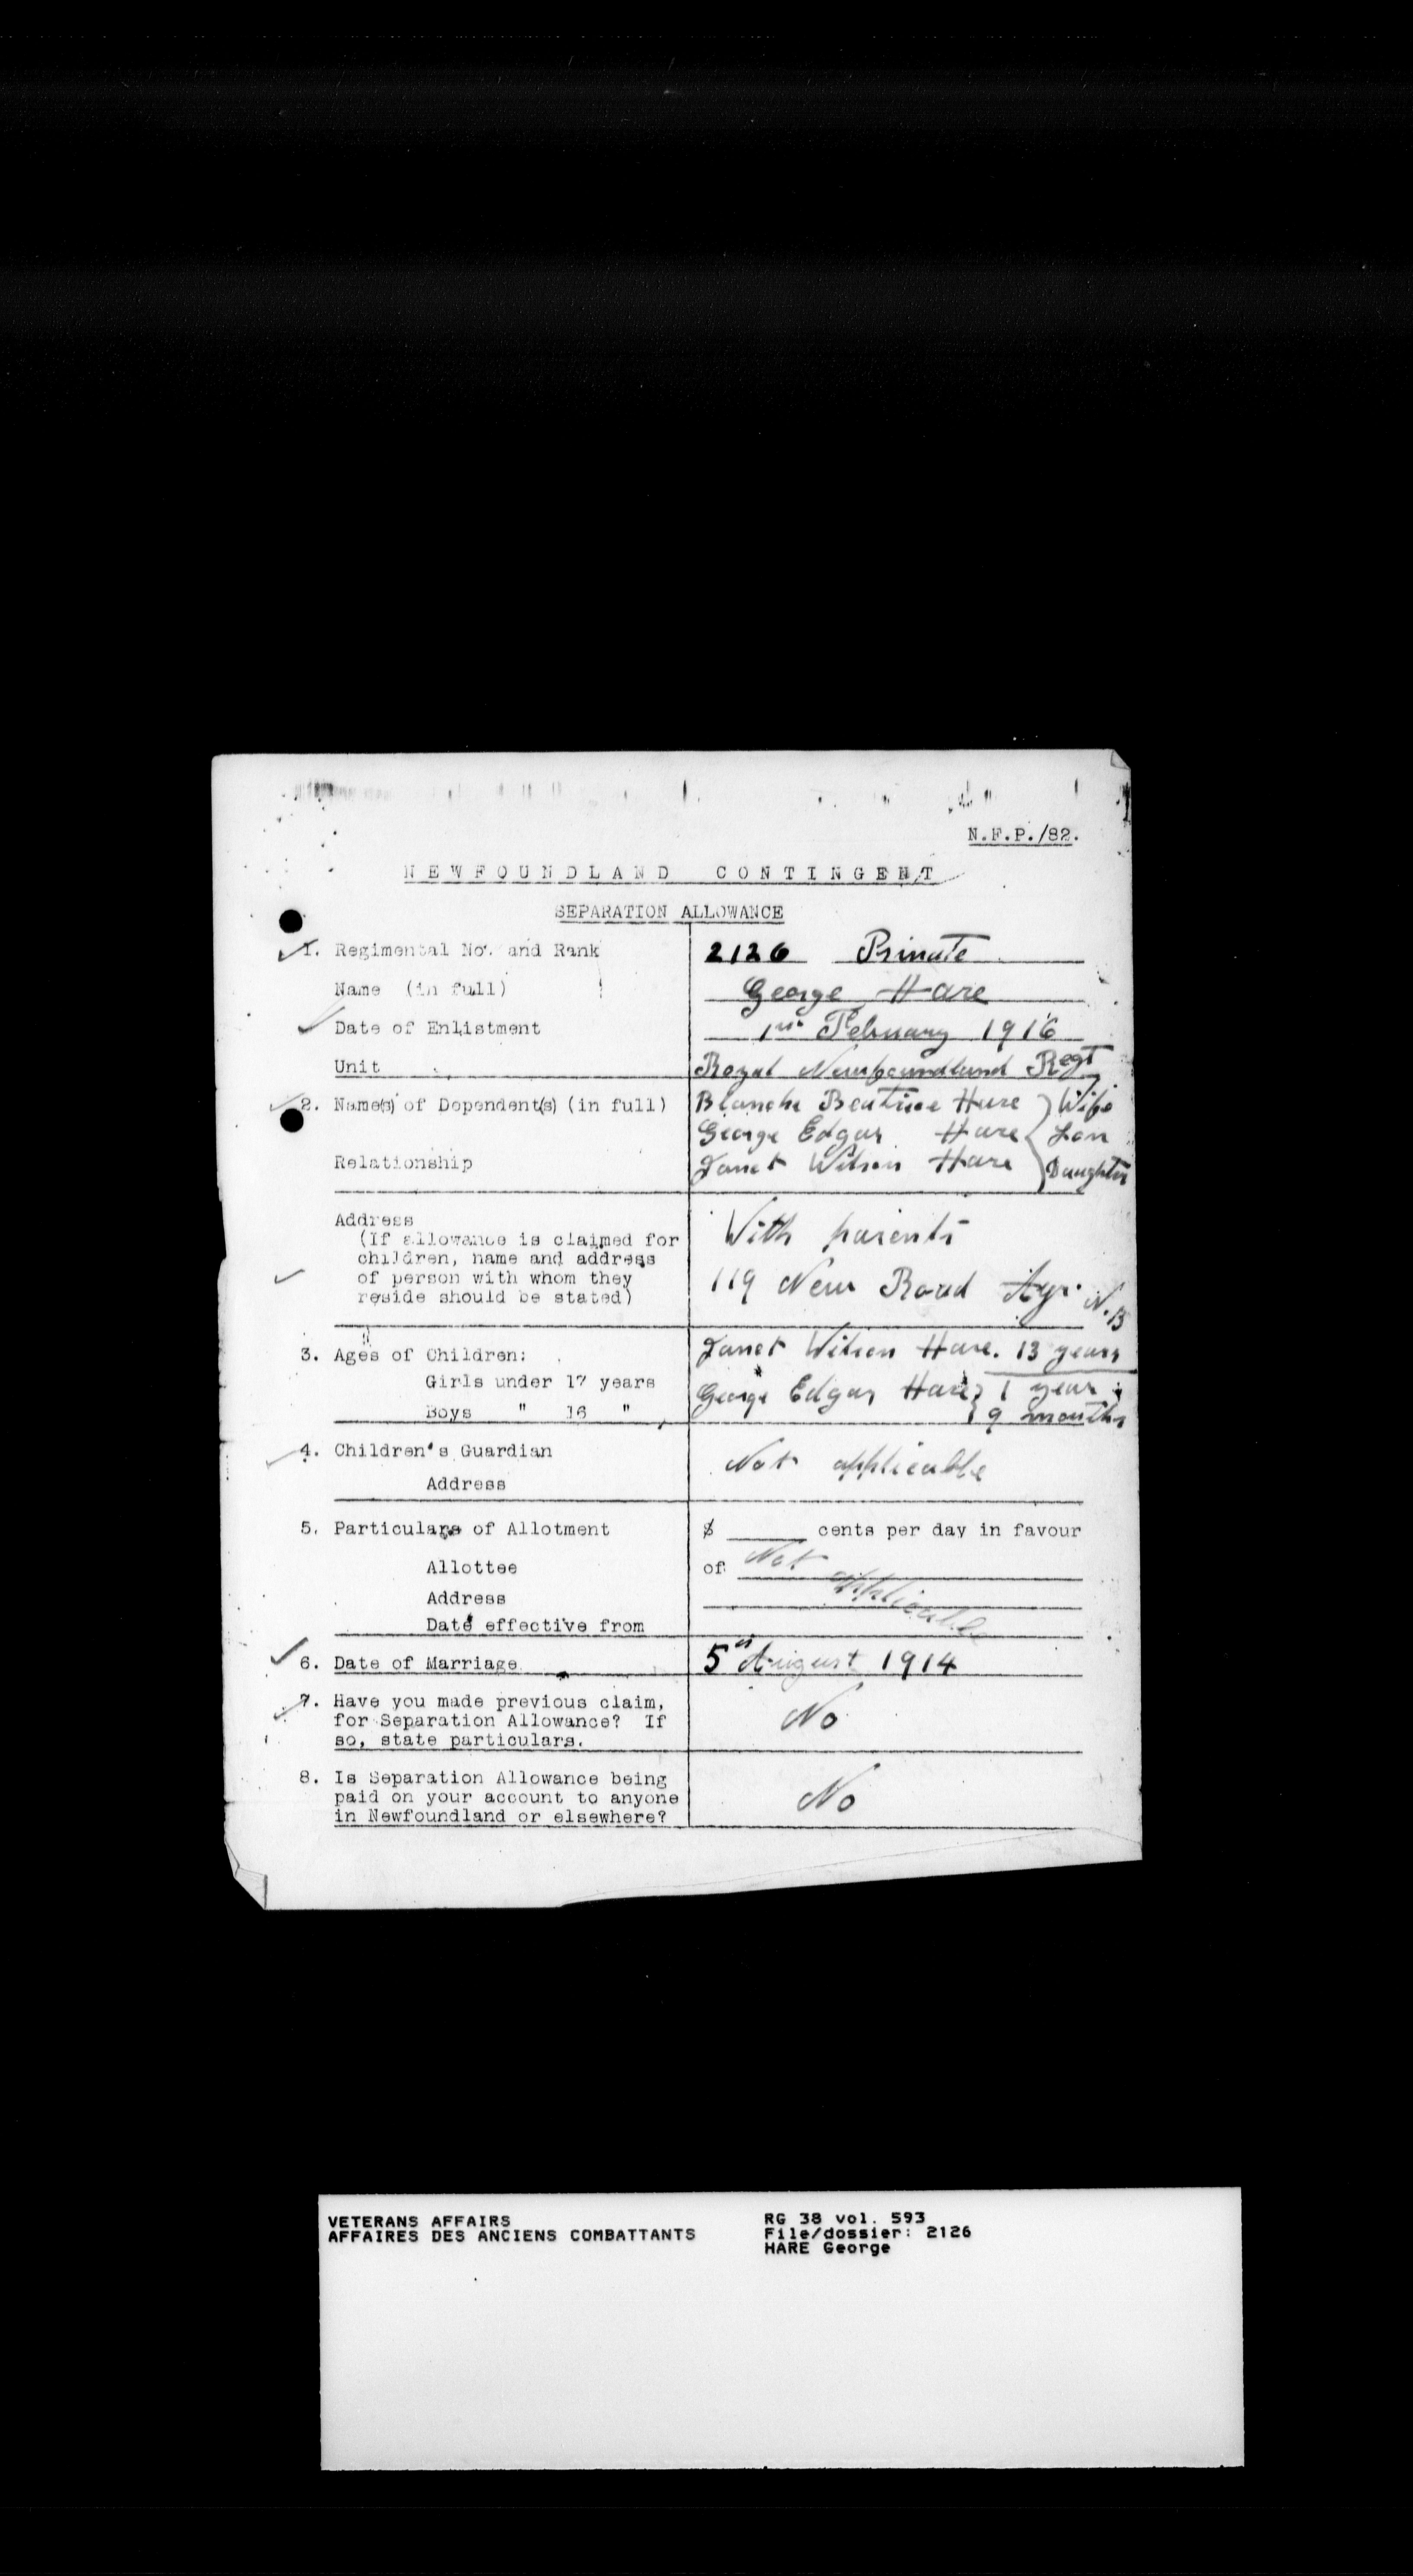 N.F.P./82.
NEWFOUNDLAND CONTINGENT
SEPARATION ALLOWANCE
1. Regimental No. and Rank 2126 Private
Name (in full) George Hare
Date of Enlistment 1st February 1916
Unit Royal Newfoundland Regt
2. Name(s) of Dependent(s) (in full) Blanche Beatrice Hare } Wife
George Edgar Hare } Son
Relationship Janet Wilson Hare } Daughter
Address With parents
(If allowance is claimed for
children, name and address
of person with whom they 119 New Road Ayr. N.B
reside should be stated)
3. Ages of Children: Janet Wilson Hare. 13 years
Girls under 17 years George Edgar Hare } 1 year
Boys " 16 " 9 months
4. Children's Guardian Not applicable
Address
5. Particulars of Allotment $ cents per day in favour
Allottee of Not applicable
Address
Date effective from
6. Date of Marriage 5th August 1914
7. Have you made previous claim,
for Separation Allowance? If No
so, state particulars.
8. Is Separation Allowance being
paid on your account to anyone No
in Newfoundland or elsewhere?
VETERANS AFFAIRS RG 38 vol. 593
AFFAIRES DES ANCIENS COMBATTANTS File/dossier: 2126
HARE George